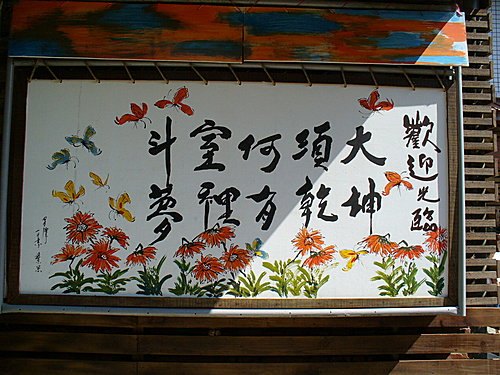 歡迎光臨
斗室何須大
夢裡有乾坤